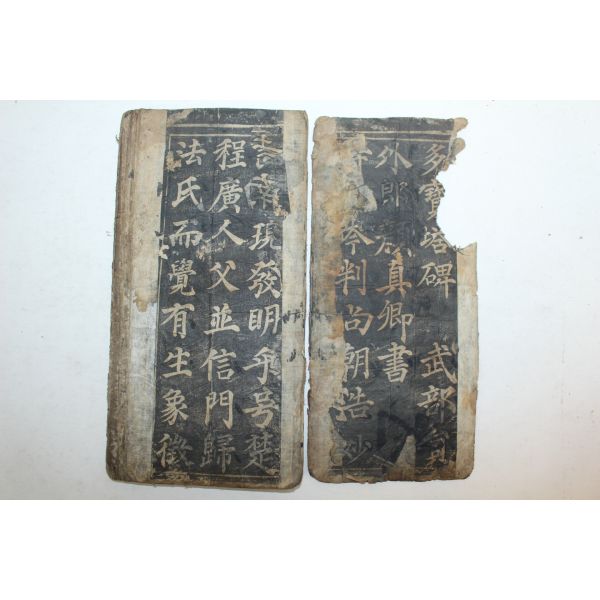 多寶塔碑 武部員
外郎顏真卿書
岑判尚朝浩妙
現發明乎号楚
程廣人父並信門歸
法氏而覺有生象徵